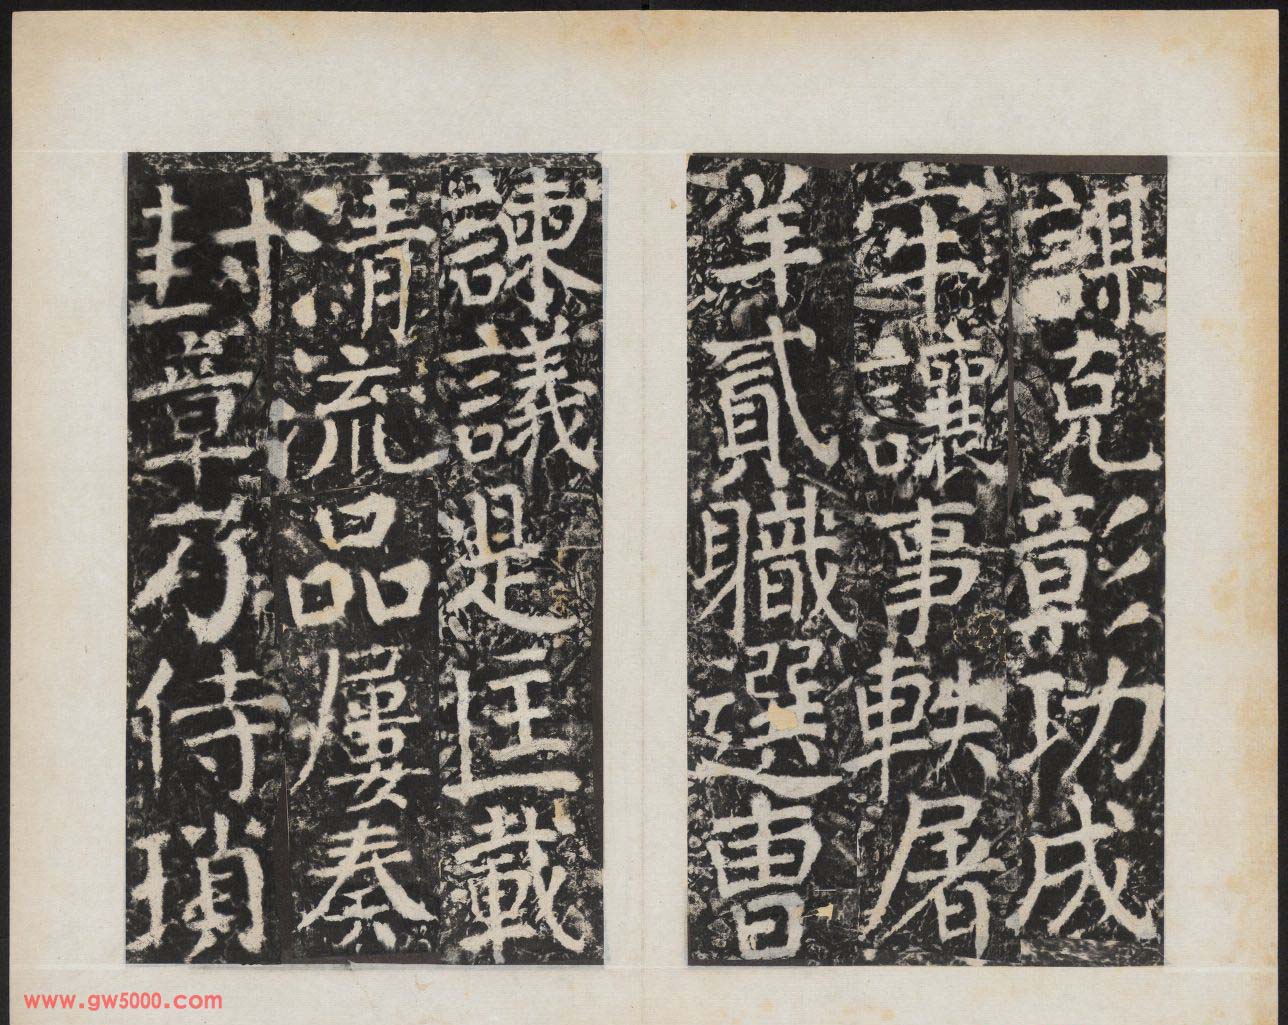 謀克彰功成
牢讓事軼屠
羊貳職選曹
諫議是匡載
清流品屢奏
封章乃侍瑣
www.gw5000.com